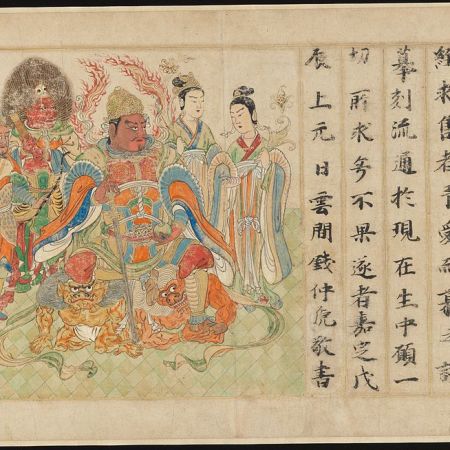 經求售者
摹刻流通於現在生中願一
切所求無不果遂者嘉定戊
辰上元日雲間錢仲虎敬書